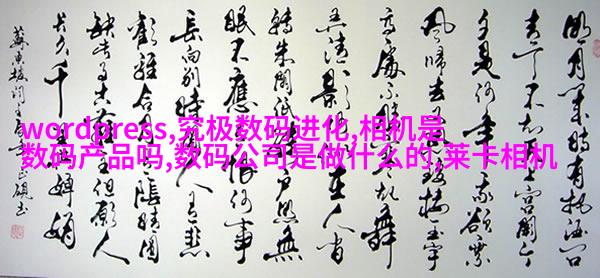 wordpress,究极数码进化,相机是
数码产品吗,数码公司是做什么的,莱卡相机
明月幾時有把酒问
青天不知天上宫阙今
夕是何年我欲乘
風归去又恐琼楼玉宇
高處不勝寒起舞
弄清影何似在人间
轉朱阁低绮户照無
眠不應有恨何事
長向别時圆人有悲
歡離合月有陰晴圆
缺此事古難全但願人
長久千里共嬋娟